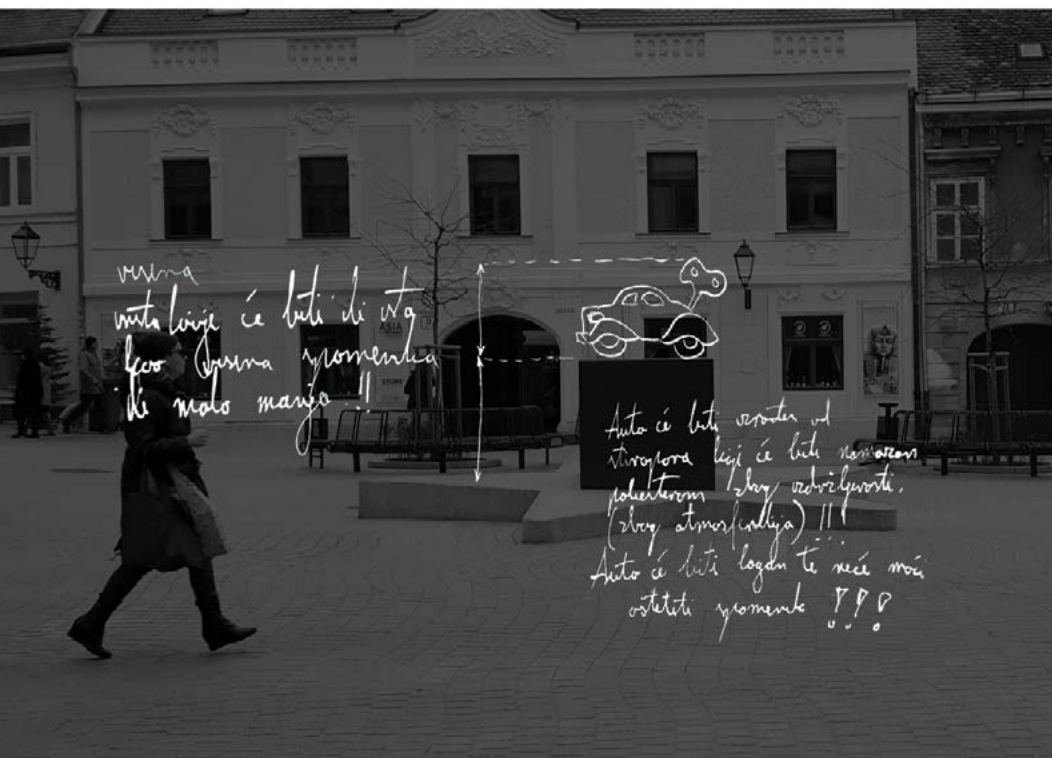 visina
instalacije će biti ili ista
kao visina spomenika
ili malo manja !!
ASIA
Auto će biti izrađen od
stiropora koji će biti namazan
poliesterom zbog izdržljivosti.
(zbog atmosferilija) !!!
Auto će biti lagan te neće moći
oštetiti spomenik !!!